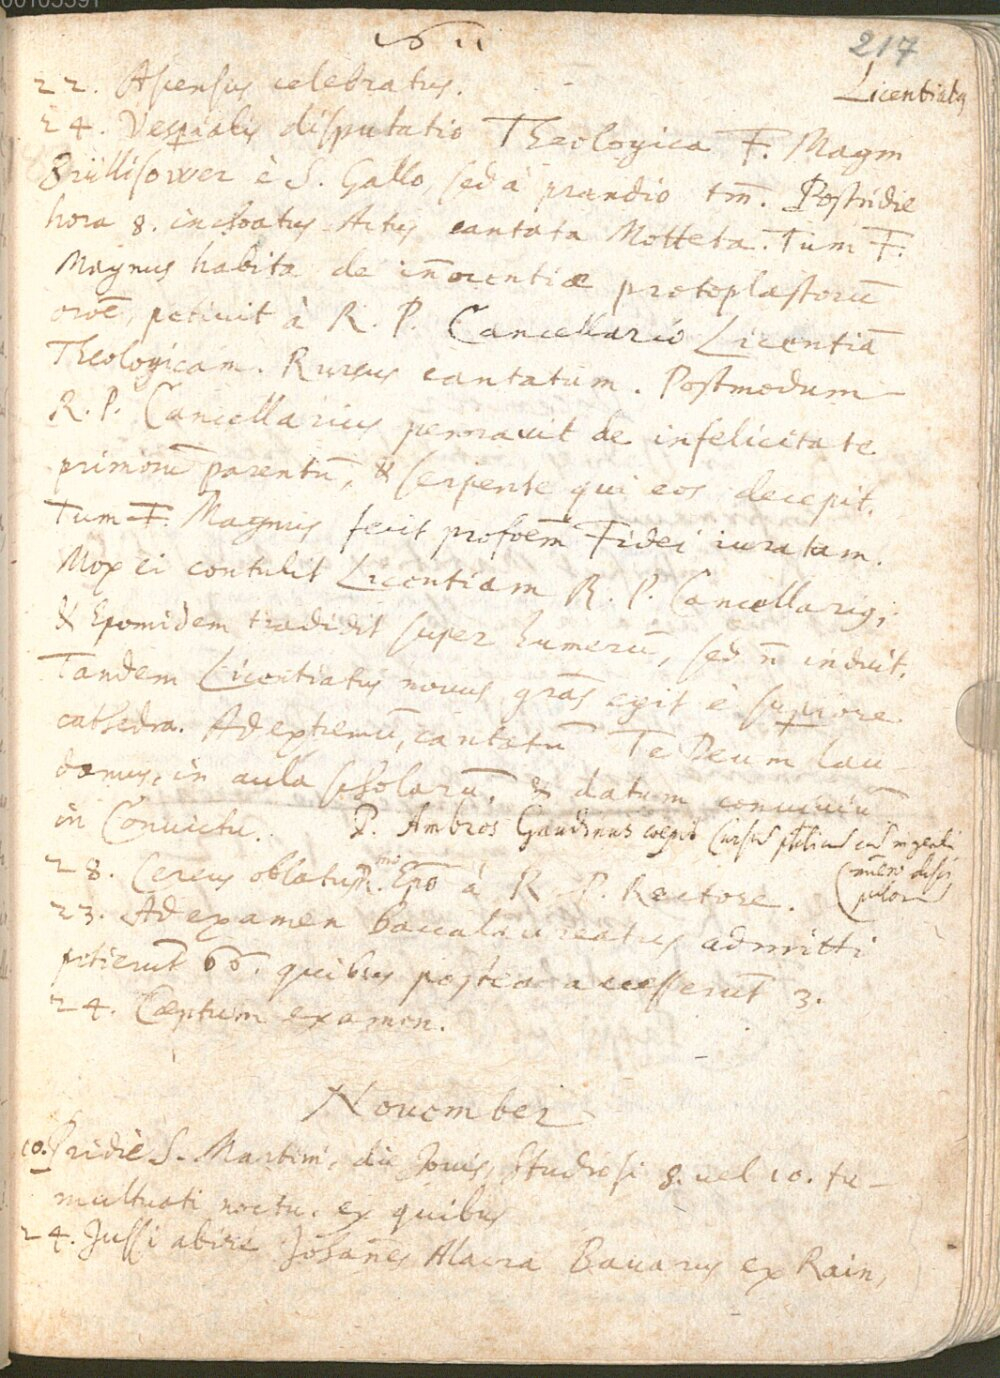 217
22. Ascensus celebratus.
Licentiatus
24. Vesperialis disputatio Theologica F. Magni
Brüllisower è S. Gallo, sed à prandio tm̄. Postridie
hora 8. inchoatus Actus cantata Motteta. Tum F.
Magnus habita de in̄ocentiæ protoplastorū
oroē, petiuit à R. P. Cancellario Licentiā
Theologicam. Rursus cantatum. Postmodum
R. P. Cancellarius perorauit de infelicitate
primorū parentū, & serpente qui eos decepit.
Tum F. Magnus fecit profoēm Fidei iuratam.
Mox ei contulit Licentiam R. P. Cancellarius,
& Epomidem tradidit super humerū, sed n̄ induit.
Tandem Licentiatus nouus grās egit è superiore
cathedra. Ad extremū, cantatū Te Deum lau
damus, in aula scholarū, & datum conuiuiū
in Conuictu. P. Ambros Gaudinus coepit Cursū
28. Cereus oblatus R.mo Epō à R. P. Rectore.
23. Ad examen baccalaureatus admitti
petierūt 66. quibus postea accesserūt 3.
24. Cœptum examen.
Nouember
10. Pridie S. Martini, die Jouis, Studiosi 8. uel 10. tu-
multuati noctu. ex quibus
24. Jussi abire Johan̄es Alacra Bauarus ex Rain,